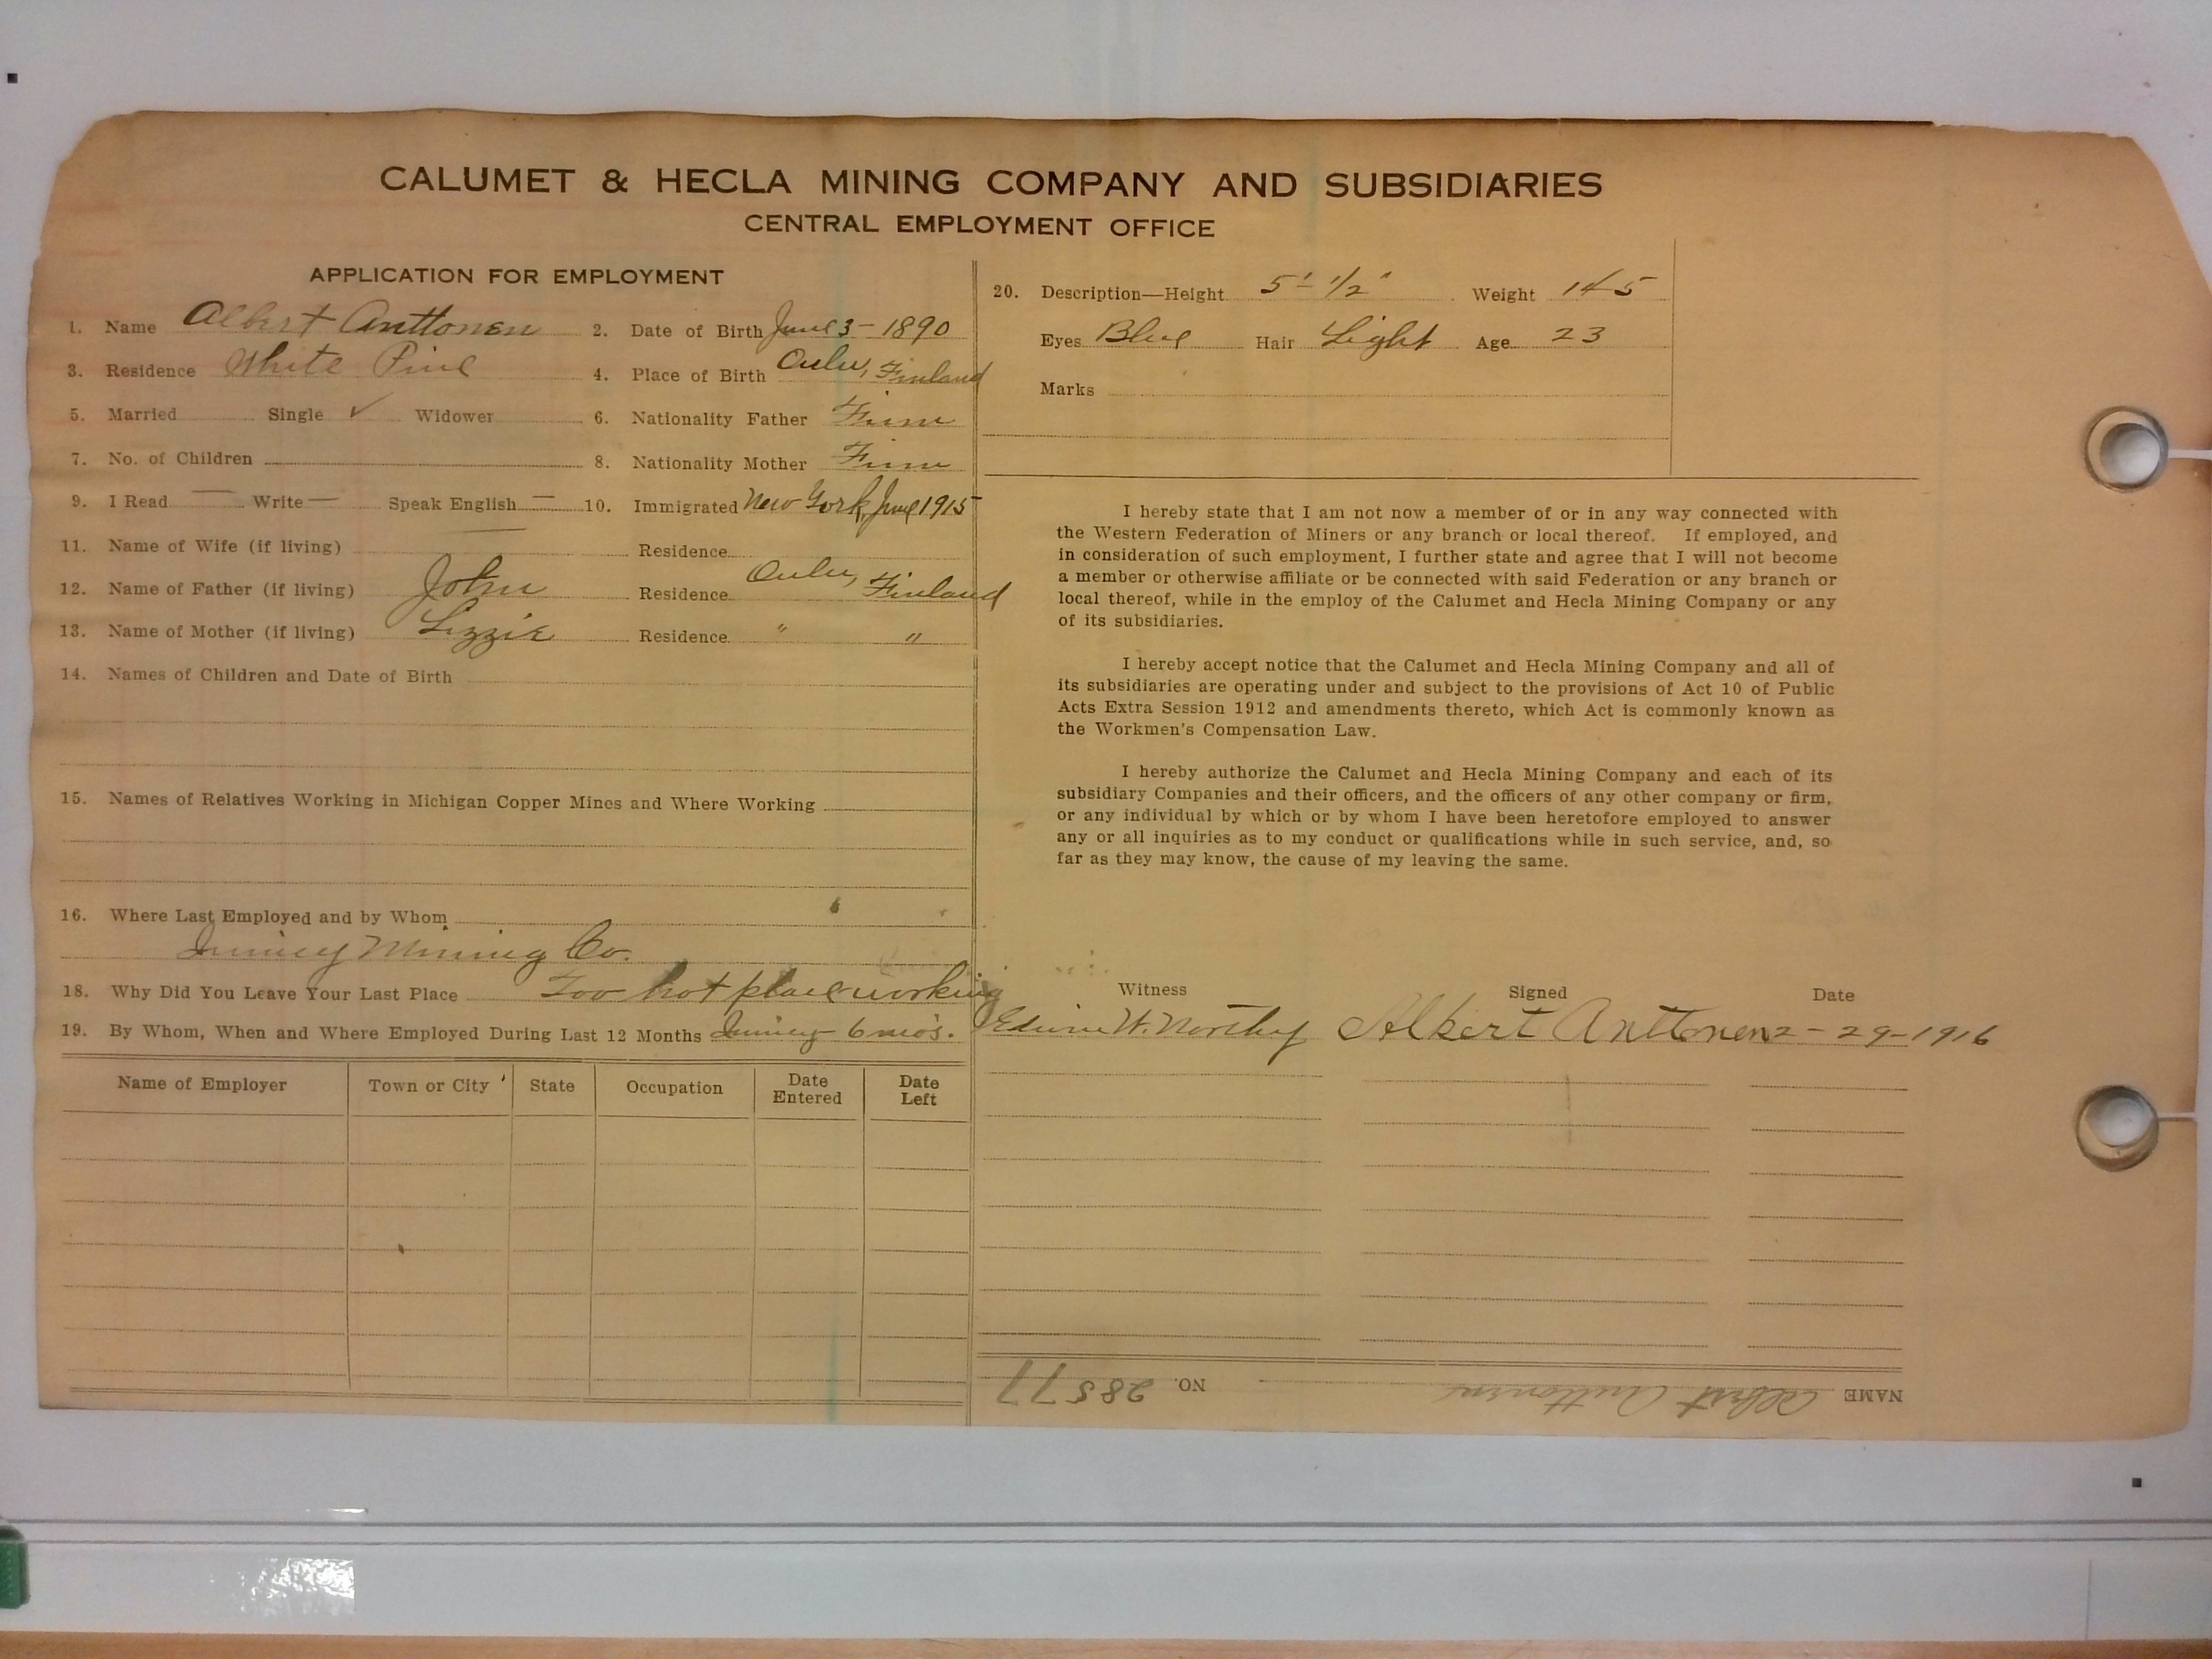 CALUMET & HECLA MINING COMPANY AND SUBSIDIARIES
CENTRAL EMPLOYMENT OFFICE
APPLICATION FOR EMPLOYMENT
1. Name Albert Anttonen 2. Date of Birth June 3 - 1890
3. Residence White Pine 4. Place of Birth Oulu, Finland
5. Married Single ✓ Widower 6. Nationality Father Finn
7. No. of Children 8. Nationality Mother Finn
9. I Read — Write — Speak English — 10. Immigrated New York, June 1915
11. Name of Wife (if living) — Residence
12. Name of Father (if living) John Residence Oulu, Finland
13. Name of Mother (if living) Lizzie Residence " "
14. Names of Children and Date of Birth
15. Names of Relatives Working in Michigan Copper Mines and Where Working
16. Where Last Employed and by Whom
Mining Co.
18. Why Did You Leave Your Last Place Too hot place working
19. By Whom, When and Where Employed During Last 12 Months 6 mo's.
Name of Employer Town or City State Occupation Date Entered Date Left
20. Description—Height 5' - 1/2" Weight 145
Eyes Blue Hair Light Age 23
Marks
I hereby state that I am not now a member of or in any way connected with
the Western Federation of Miners or any branch or local thereof. If employed, and
in consideration of such employment, I further state and agree that I will not become
a member or otherwise affiliate or be connected with said Federation or any branch or
local thereof, while in the employ of the Calumet and Hecla Mining Company or any
of its subsidiaries.
I hereby accept notice that the Calumet and Hecla Mining Company and all of
its subsidiaries are operating under and subject to the provisions of Act 10 of Public
Acts Extra Session 1912 and amendments thereto, which Act is commonly known as
the Workmen's Compensation Law.
I hereby authorize the Calumet and Hecla Mining Company and each of its
subsidiary Companies and their officers, and the officers of any other company or firm,
or any individual by which or by whom I have been heretofore employed to answer
any or all inquiries as to my conduct or qualifications while in such service, and, so
far as they may know, the cause of my leaving the same.
Witness Signed Date
Edwin W. Northey Albert Anttonen 2-29-1916
NAME Albert Anttonen NO. 28577